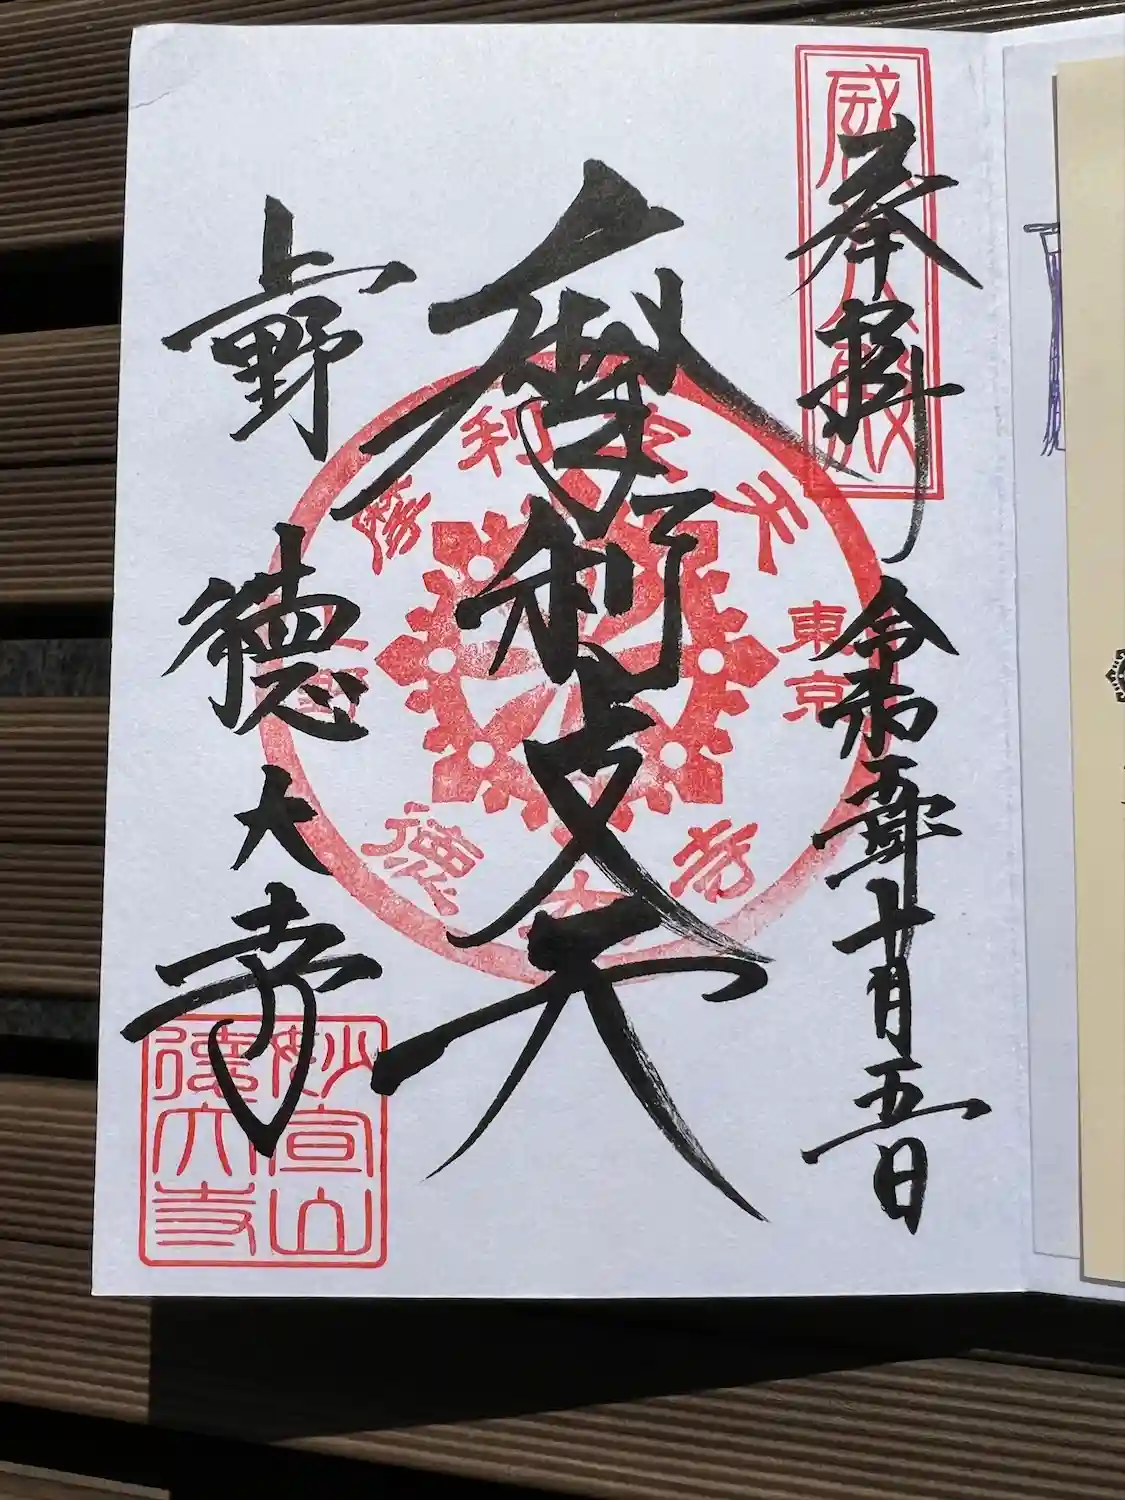 奉拝
令和二年十月五日
摩利支天
上野
徳大寺
摩利支天
東京
上野
德大寺
妙宣山
德大寺